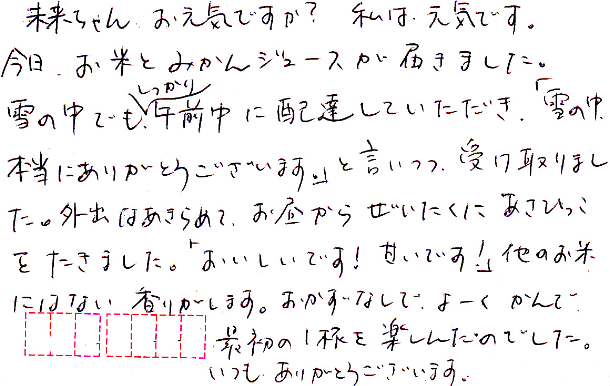 未来ちゃん、お元気ですか？ 私は、元気です。
今日、お米とみかんジュースが届きました。
雪の中でも、しっかり午前中に配達していただき、「雪の中、
本当にありがとうございます。」と言いつつ、受け取りまし
た。外出はあきらめて、お昼からぜいたくにあさひっこ
をたきました。「おいしいです！甘いです！」他のお米
にはない香りがします。おかずなしで、よーくかんで、
最初の1杯を楽しんだのでした。
いつも、ありがとうございます。